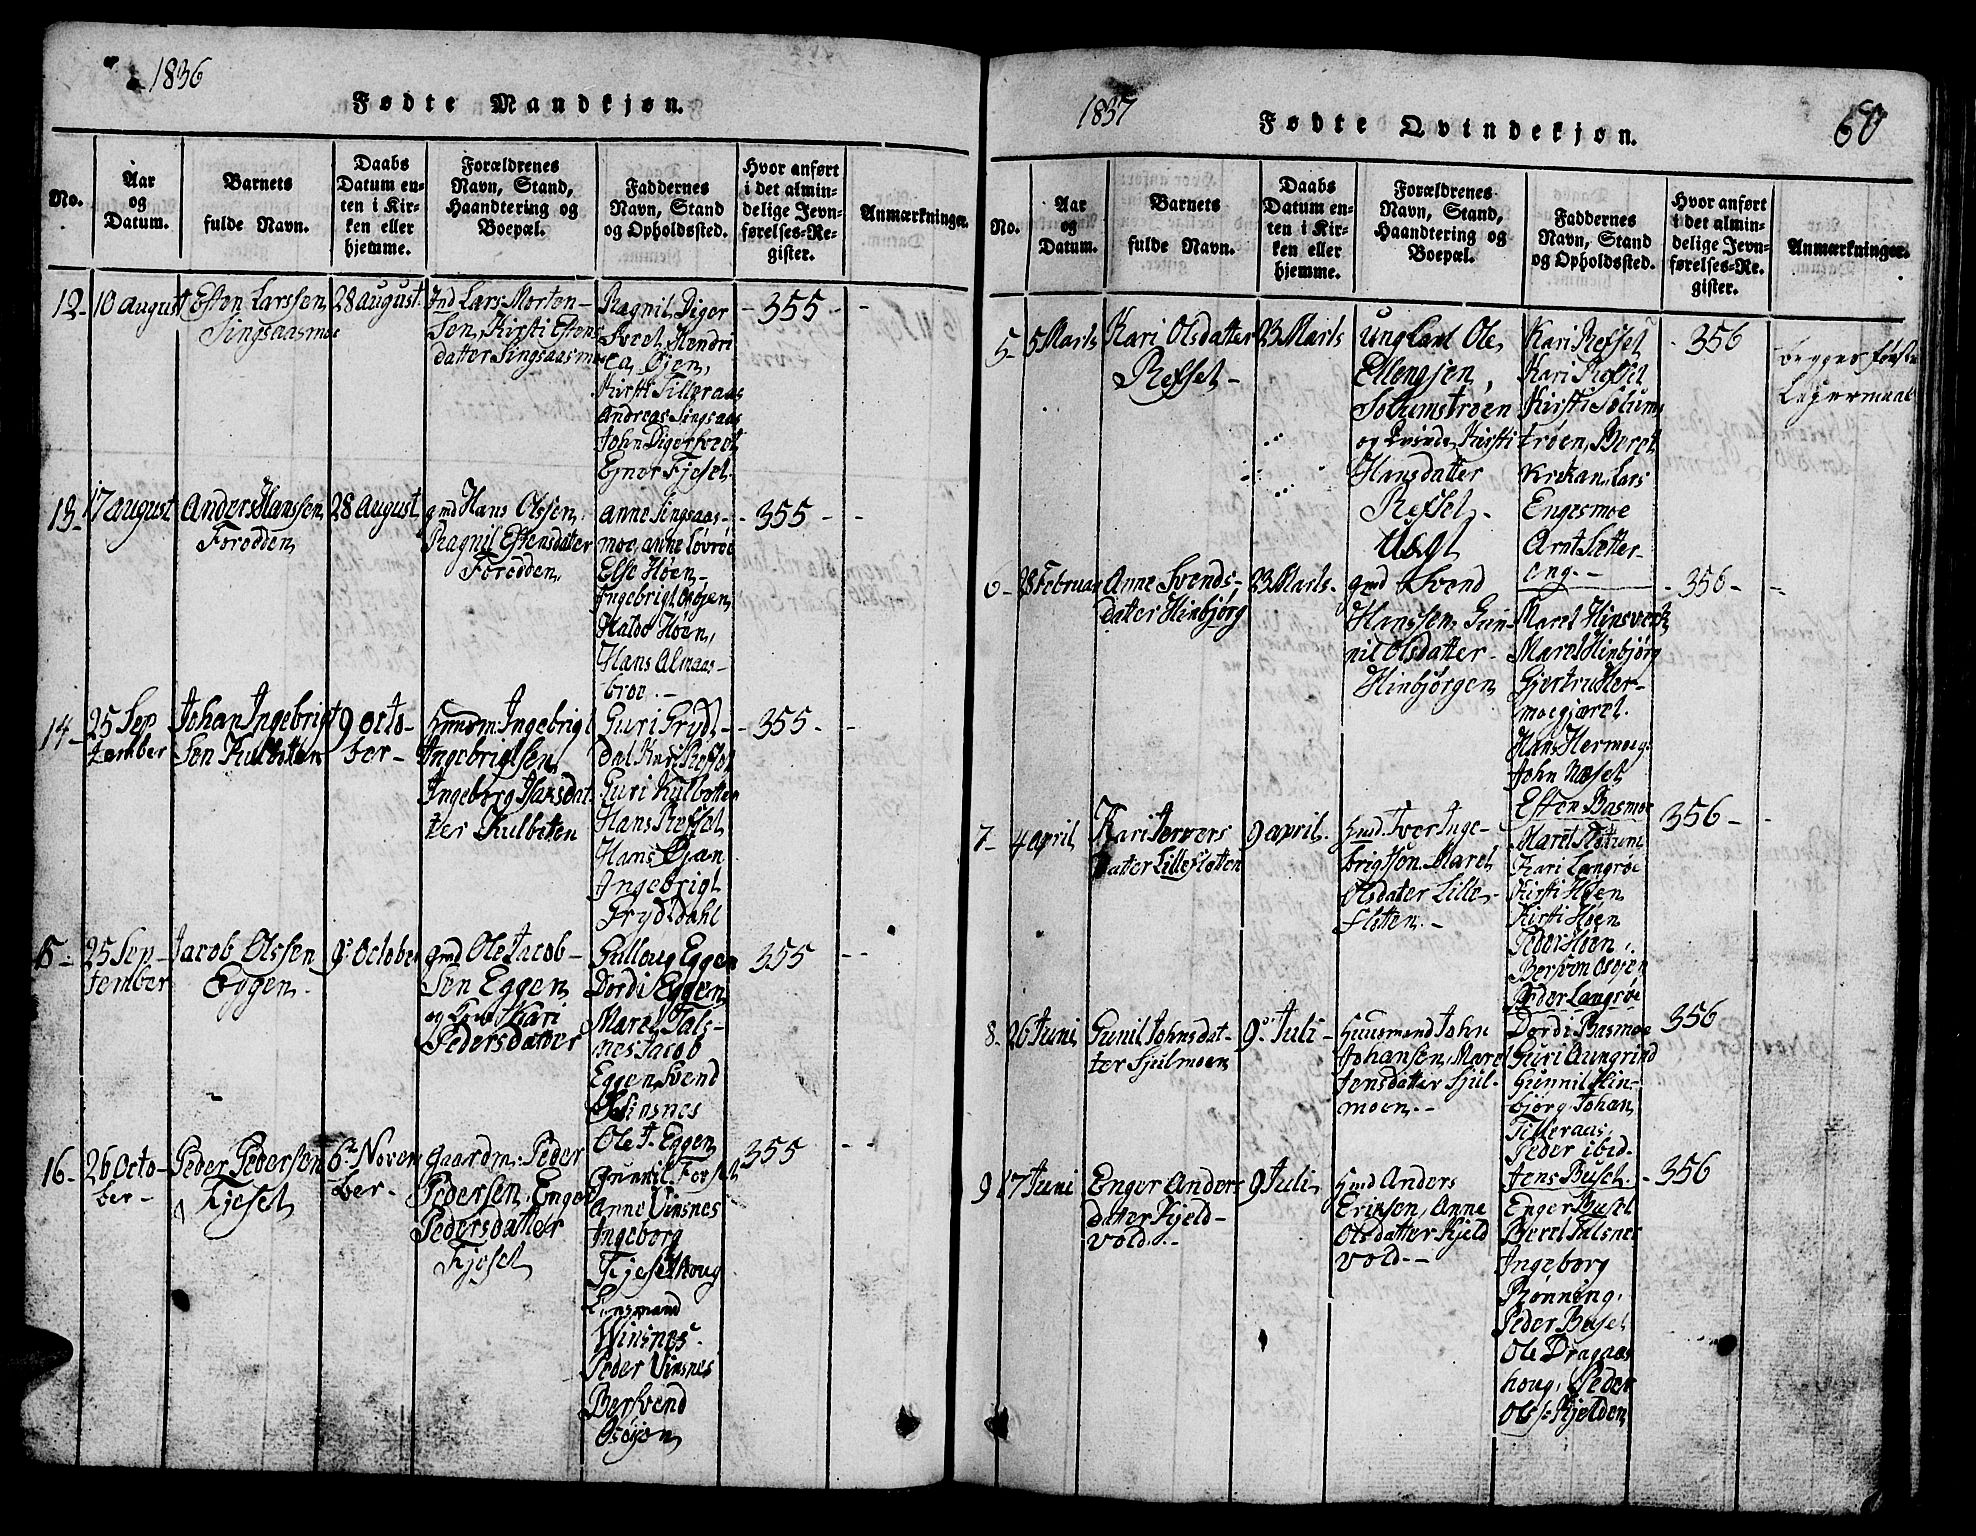 1836
Fødte Mandkjøn.
No.
Aar
og
Datum.
Barnets
fulde Navn.
Daabs
Datum en-
ten i Kir-
ken eller
hjemme.
Forældrenes
Navn, Stand,
Haandtering og
Boepæl.
Faddernes
Navn, Stand
og Opholdssted.
Hvor anført
i det almin-
delige Jevn-
førelses-Re-
gister.
Anmærkninger.
12-
10 august
Esten Larssen
Singsaasmoe
28 august
Lars Morten-
sen, Kirsti Estens
datter Singsaasmoe
Ragnil Diger
Hendri
Øjen,
Kirsti Tilleraas
Andreas Singsaas
John
Ejner Fjeset.
355
13-
17 august
Anders Hanssen
Forodden
28 august
gmd Hans Olssen
Ragnil Estensdatter
Forodden
Anne Singsaas-
moe, anne
Else Høen-
Ingebrigt Osøjen
Haldo Høen,
Hans Almaas-
broe.-
355
14-
25 Sep
tember
Johan Ingebrigt
Sen Kulbotten
9 octo-
ber-
Ingebrigt
Ingebrigtsen
Ingeborg Hansdat
ter Kulbøten
Guri Grydt-
dal, Kari
Guri Kulbotten
Hans Refset
Hans Øjan
Ingebrigt
Grydtdahl
355
15-
25 Sep-
tember
Jacob Olssen
Eggen
9 October
gmd Ole Jacob-
Sen Eggen
og Kari
Pedersdatter
Gulloug Eggen
Dordi Eggen
Maret Tals-
nes Jacob
Eggen, Svend
Vinsnes
Ole J. Eggen
355
16-
26 Octo-
ber-
Peder Pedersen
Fjeset
6 Novem
ber-
gaardm: Peder
Pedersen, Enger
Pedersdatter
Fjeset
gunnil Forset
Anne Vinsnes
Ingeborg
Fjeset
Lensmand
Winsnes
Peder Vinsnes
Bersvend
Osøjen
355
1837
Fødte Qvindekjøn.
60
No.
Aar
og
Datum.
Barnets
fulde Navn.
Daabs
Datum en-
ten i Kir-
ken eller
hjemme.
Forældrenes
Navn, Stand,
Haandtering og
Boepæl.
Faddernes
Navn, Stand
og Opholdssted.
Hvor anført
i det almin-
delige Jevn-
førelses-Re-
gister.
Anmærkninger.
5-
5 Marts
Kari Olsdatter
Refset-
23 Marts
Ungkarl Ole
Ellengsen,
Solhemstrøen
og Kirsti
Hansdatter
Refset-
Uægt
Kari Refset
Kari Refset
Kirsti Solums
trøen, Beret
Lars
Engesmoe
Arnt Sætter-
eng.-
356
begges første
Lejermaal
6-
28 Februar
Anne Svends-
datter Hinbjørg
23 Marts-
gmd Svend
Hanssen, Gun-
nil Olsdatter-
Hinbjørgen
Maret
Maret Hinbjørg
Gjertru Her-
moegjæret.
Hans Hermoeg.
John Næset
Esten Basmoe
356-
7-
4 april
Kari Jervers
datter Lilleslotten
9 april.
Iver Inge-
brigtson Maret
Olsdatter Lille-
slotten.-
Maret
Kari Langrøe
Kirsti Høen
Kirsti Høen
Peder Høen
Osøjen
Peder Langrøe
356-
8-
26 Juni
Gunil Johnsdat-
ter Sjulmoen
9 Juli-
Huusmand John
Johansen, Maret
Jensdatter Sjul-
moen.-
Dordi Basmoe
Guri Aungrind
Gunnil Hin-
bjørg, Johan
Tilleraas,
Peder ibid
Jens Buset.-
356
9
17 Juni
Enger Anders
datter Kjeld-
vold..-
9 Juli
Anders
Eriksen, Anne
Olsdatter Kjeld
vold.-
Enger Buset
Beret Talsnes
Ingeborg
Rønning,
Peder Buset
Ole Dragaas
houg, Peder
Ols: Kjelden
356